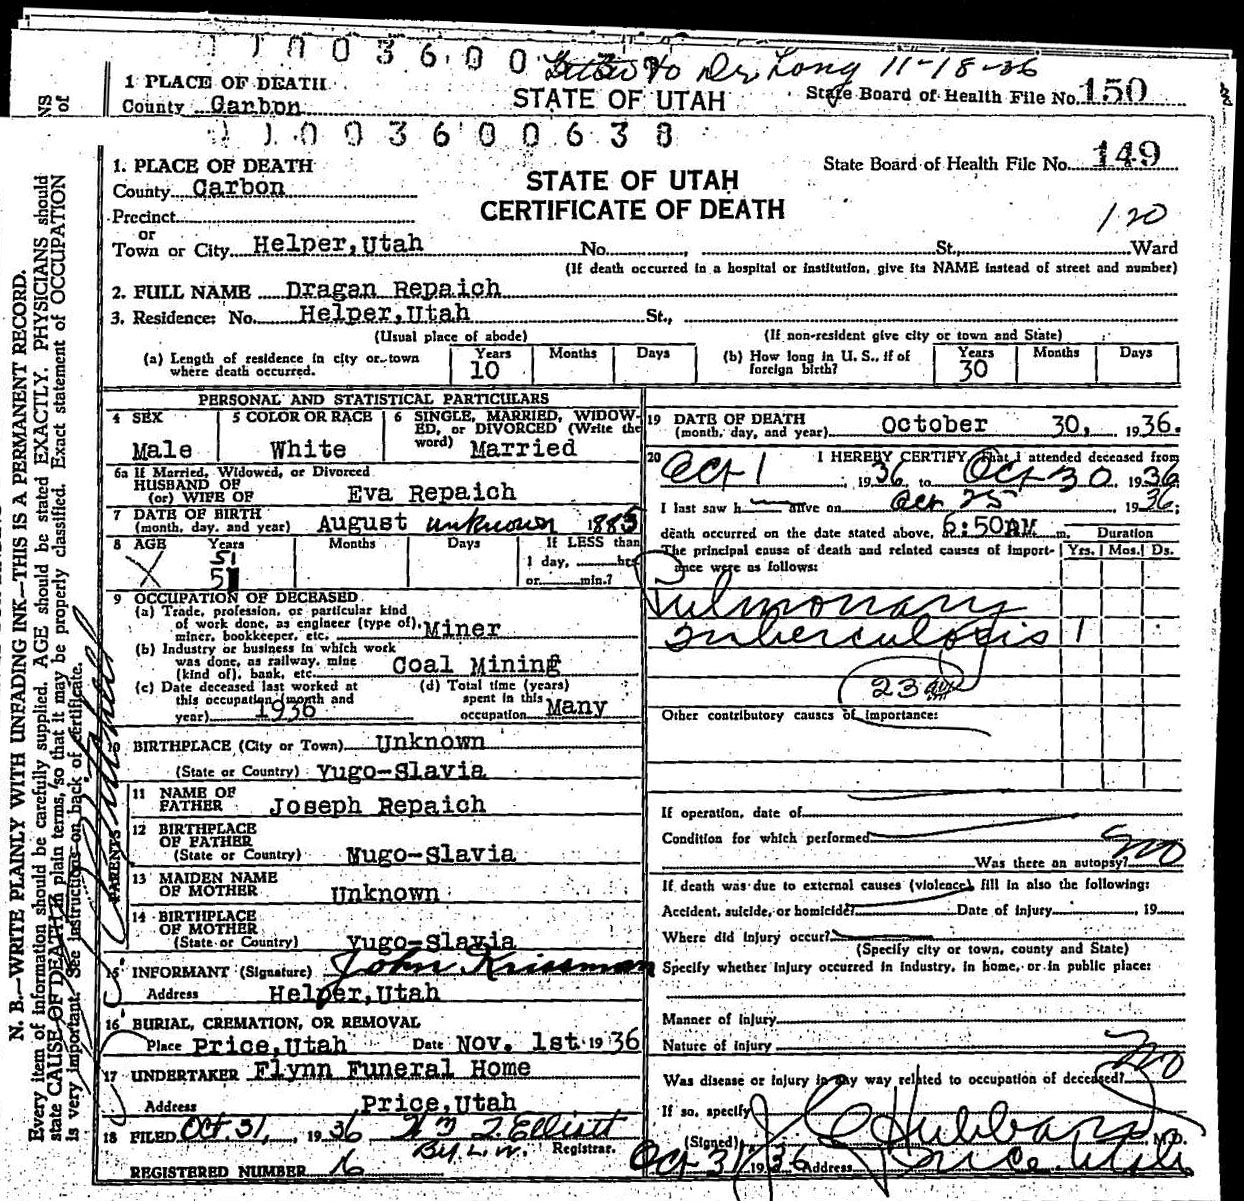 0 1 0 0 3 6 0 0
to Dr. Long 11-18-36
1 PLACE OF DEATH
County Carbon
STATE OF UTAH
State Board of Health File No. 150
0 1 0 0 3 6 0 0 6 3 8
1. PLACE OF DEATH
County Carbon
Precinct
or
Town or City Helper, Utah No. , St., Ward
STATE OF UTAH
CERTIFICATE OF DEATH
State Board of Health File No. 149
120
(If death occurred in a hospital or institution, give its NAME instead of street and number)
2. FULL NAME Dragan Repaich
3. Residence: No. Helper, Utah St.,
(Usual place of abode) (If non-resident give city or town and State)
(a) Length of residence in city or town where death occurred. Years 10 Months Days
(b) How long in U. S., if of foreign birth? Years 30 Months Days
PERSONAL AND STATISTICAL PARTICULARS
4 SEX Male
5 COLOR OR RACE White
6 SINGLE, MARRIED, WIDOWED, or DIVORCED (Write the word) Married
6a If Married, Widowed, or Divorced
HUSBAND OF
(or) WIFE OF Eva Repaich
7 DATE OF BIRTH
(month, day, and year) August unknown 1885
8 AGE Years 51 51 Months Days If LESS than
1 day, hrs
or min.?
9 OCCUPATION OF DECEASED
(a) Trade, profession, or particular kind
of work done, as engineer (type of),
miner, bookkeeper, etc. Miner
(b) Industry or business in which work
was done, as railway, mine
(kind of), bank, etc. Coal Mining
(c) Date deceased last worked at
this occupation (month and
year) 1936
(d) Total time (years)
spent in this
occupation Many
10 BIRTHPLACE (City or Town) Unknown
(State or Country) Yugo-Slavia
PARENTS
11 NAME OF
FATHER Joseph Repaich
12 BIRTHPLACE
OF FATHER
(State or Country) Mugo-Slavia
13 MAIDEN NAME
OF MOTHER Unknown
14 BIRTHPLACE
OF MOTHER
(State or Country) Yugo-Slavia
15 INFORMANT (Signature) John Krissman
Address Helper, Utah
16 BURIAL, CREMATION, OR REMOVAL
Place Price, Utah Date Nov. 1st 1936
17 UNDERTAKER Flynn Funeral Home
Address Price, Utah
18 FILED Oct. 31, 1936 Wm T. Elliott
By L. W. Registrar.
REGISTERED NUMBER 16
19 DATE OF DEATH
(month, day, and year) October 30, 1936.
20 I HEREBY CERTIFY, That I attended deceased from
Oct 1 1936, to Oct 30 1936
I last saw h alive on Oct 25 1936;
death occurred on the date stated above, at 6:50AM m. Duration
The principal cause of death and related causes of importance were as follows: Yrs. Mos. Ds.
Pulmonary
Tuberculosis 1
23
Other contributory causes of importance:
If operation, date of
Condition for which performed
Was there an autopsy? no
If death was due to external causes (violence), fill in also the following:
Accident, suicide, or homicide? Date of injury , 19
Where did injury occur?
(Specify city or town, county and State)
Specify whether injury occurred in industry, in home, or in public place:
Manner of injury
Nature of injury
Was disease or injury in any way related to occupation of deceased? no
If so, specify
(Signed) J C Hubbard M.D.
Oct 31 1936 Address Price, Utah
N. B.—WRITE PLAINLY WITH UNFADING INK—THIS IS A PERMANENT RECORD.
Every item of information should be carefully supplied. AGE should be stated EXACTLY. PHYSICIANS should
state CAUSE OF DEATH in plain terms, so that it may be properly classified. Exact statement of OCCUPATION
is very important. See instructions on back of certificate.